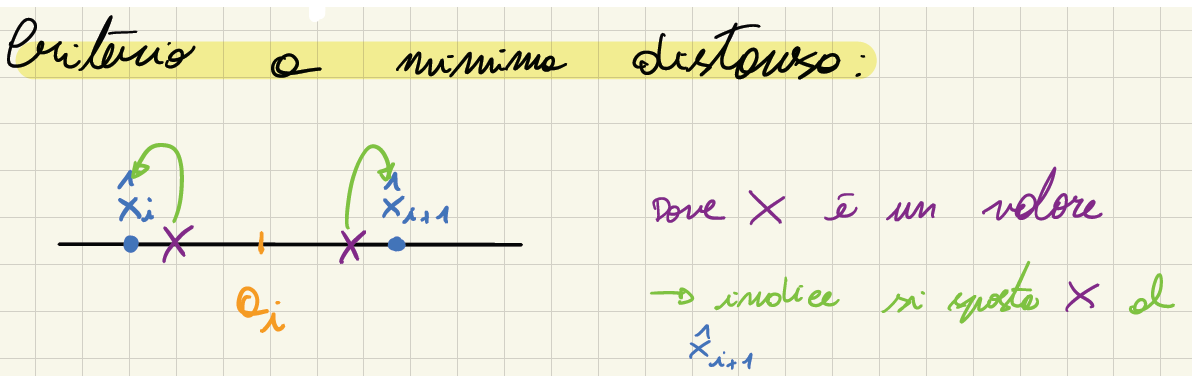 Criterio a minima distanza:
x̂ᵢ x̂ᵢ₊₁
Dove X è un valore
aᵢ
→ indica si sposta X al
x̂ᵢ₊₁